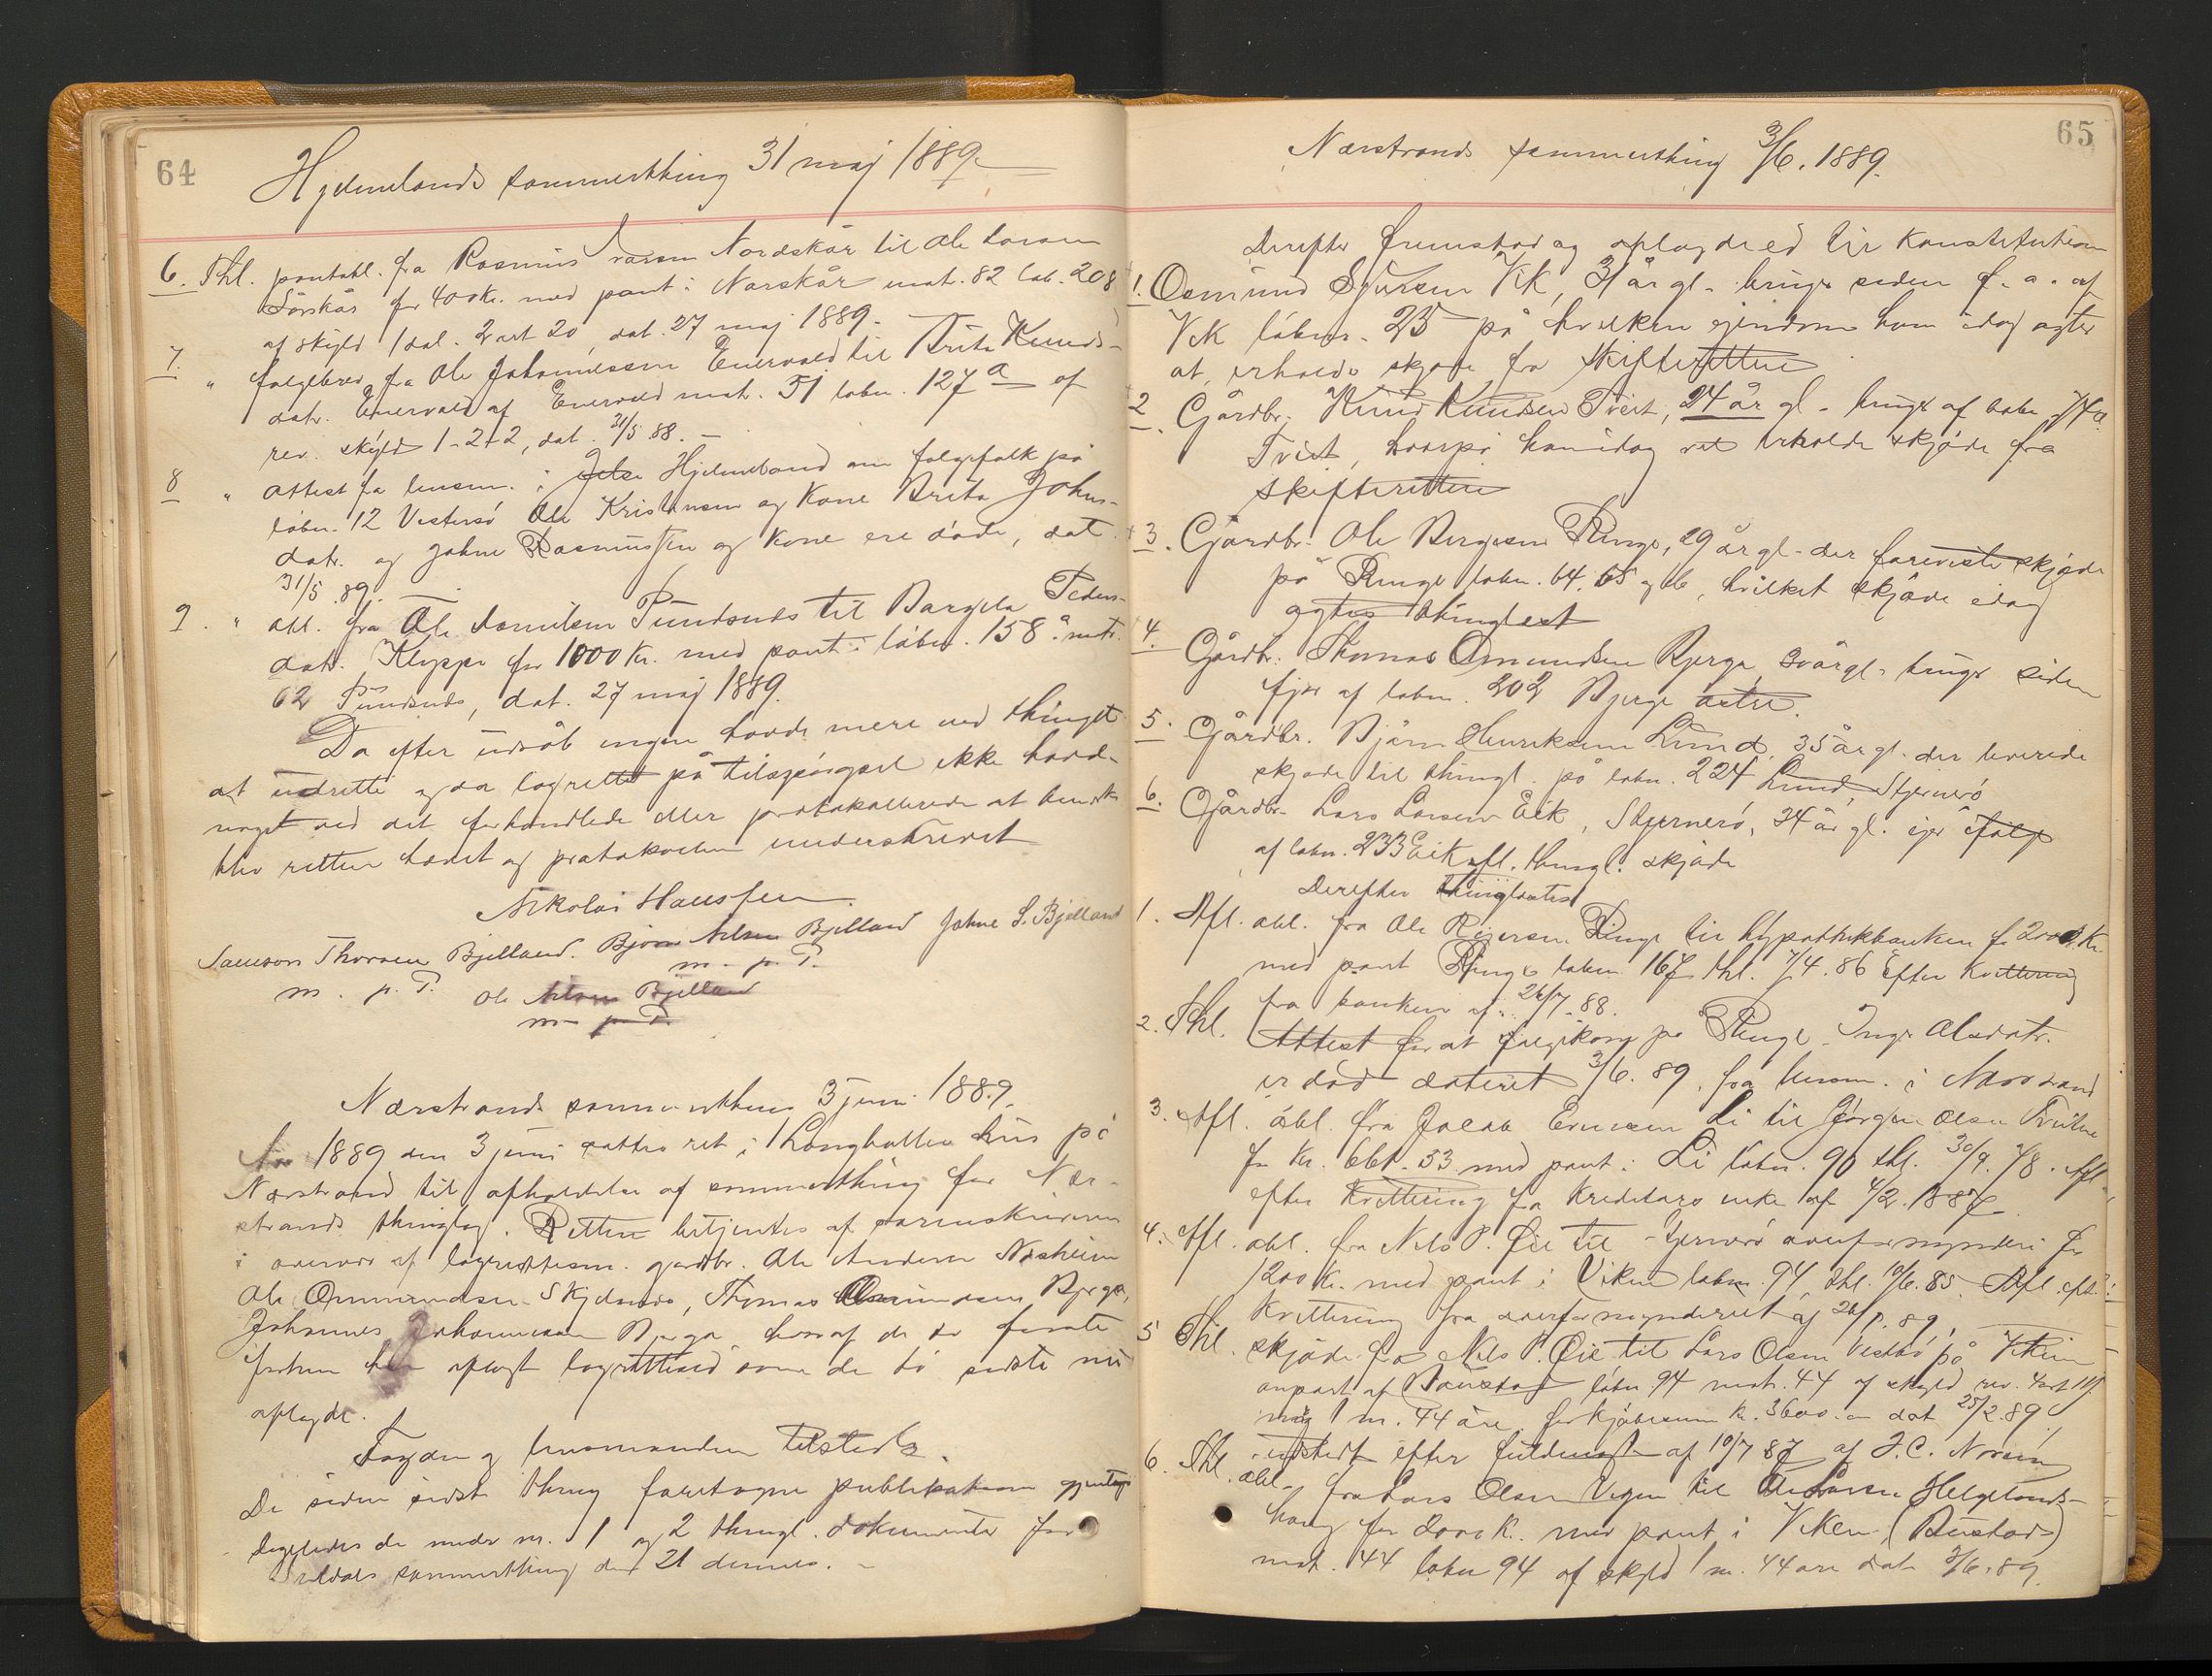 64
Hjelmelands sommerthing 31 maj 1889
6. Thl. pantobl. fra Rasmus Larsen Nordskår til Ole Larsen
Sörskår for 400 Kr. med pant i Norskår mat. 82 lab. 208
af skyld 1 dal. 2 ort 20, dat. 27 maj 1889.
7. " følgebrev fra Ole Johannessen Enervold til Brita Knuds-
datr. Enervold af Enervold mat. 51 labn. 127 a af
rev. skyld 1-2-2, dat. 31/5 88.
8 " attest fra lensm. i Jelse Hjelmeland om følgefolk på
löbn. 12 Vestersö Ole Kristensen og Kone Brita Johns-
datr. og Johne Rasmussen og Kone ere döde, dat.
31/5 89.
9. " obl. fra Ole Danielsen Pundsnes til Bargela Peders-
datr. Kleppe for 1000 Kr. med pant i löbn. 158 a matr.
62 Pundsnes, dat. 27 maj 1889.
Da efter udråb ingen havde mere ved thinget
at udrette og da lagrettet på tilspörgsel ikke havde
noget ved det forhandlede eller protokollerede at bemærke
blev retten hævet og protokollen underskrevet
Nikolai Hanssen
Samson Thorsen Bjelland. Bjorn Nilsen Bjelland Johne S. Bjelland
m. p. P. m. p. P.
Ole Nilsen Bjelland
m. p. P.
Nærstrands sommerthing 3 juni 1889.
År 1889 den 3 juni sattes ret i Langballen hus på
Nærstrand til afholdelse af sommerthing for Nær-
strands thinglag. Retten betjentes af sorenskriveren
i overvær af lagrettesm. gårdbr. Ole Andersen Næsheim
Ole Ommundsen Skjelnæs, Thomas Osmundsen Bjerga,
Johannes Johannessen Bjerga hvoraf de to første
forhen have aflagt lagrettesed som de to sidste nu
aflagde.
Fogden og lensmanden tilstede.
De siden sidste thing foretagne publikationer gjentoges
ligeledes de under nr. 1 og 2 thingl. dokumenter for
Suldals sommerthing den 21 dennes.
65
Nærstrands sommerthing 3/6. 1889.
Derefter fremstod og aflagde ed til Konstitutionen
1. Osmund Sjursen Vik, 31 år gl. bruger siden f. a. af
Vik löbnr. 25 på hvilken ejendom han idag agter
at erholde skjöde fra skifteretten
2. Gårdbr. Knud Knudsen Tveit, 24 år gl. bruger af labn. 74 a
Tveit, hvorpå han idag vil erholde skjöde fra
skifteretten
3. Gårdbr. Ole Bergesen Ringe, 29 år gl. der foreviste skjöde
på Ringe labn. 64. 65 og 66, hvilket skjöde idag
agtes thinglest
4. Gårdbr. Thomas Osmundsen Bjerga, 30 år gl. bruger siden
ifjor af labn. 202 Bjerge östre.
5. Gårdbr. Björn Henriksen Lund, 35 år gl. der leverede
skjöde til thingl. på labn. 224 Lund, Stjernerö
6. Gårdbr. Lars Larsen Eik, Stjernerö, 34 år gl. ejer ifölge
af labn. 233 Eik afl. thingl. skjöde
Derefter thinglæstes
1. Afl. obl. fra Ole Rejersen Ringe til hypothekbanken for 2000 Kr.
med pant Ringe labn. 167 thl. 7/4. 86 efter kvittering
fra banken af 26/7. 88.
2. Thl. Attest for at fölgekone på Ringe Inge Olsdatr.
er död dateret 3/6. 89. fra lensm. i Nærstrand
3. Afl. obl. fra Jacob Ericksen Li til Jörgen Olsen Tveitne
for Kr. 661.53 med pant i Li labn. 90 thl. 30/9. 78. Afl.
efter kvittering fra kreditors enke af 4/2. 1887
4. Afl. obl. fra Nils P. Öie til Stjernerö overformynderi for
1200 Kr. med pant i Viken labn. 94 thl. 10/6. 85. Afl. eft.
kvittering fra overformynderiet af 26/ . 89.
5 Thl. skjöde fra Nils P. Öie til Lars Olsen Vestbö på Viken
anpart af Baustad labn. 94 matr. 44 af skyld rev. 4 ort 11 /
m 1 m. 44 öre for kjöbesum Kr. 3600.- dat 25/2. 89.
udstedt efter fuldmagt af 10/7 87 af J. C.
6. Thl. obl. fra Lars Olsen Vigen til Lars Helgelands-
haug for Kr. med pant i Viken (Bustad)
mat. 44 labn 94 af skyld 1 m. 44 öre dat 3/6. 89.